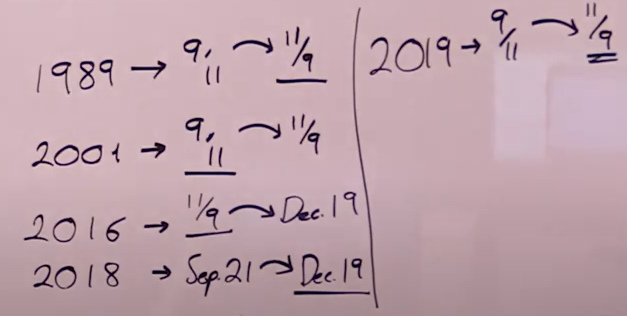 1989 → 9/11 → 11/9
2001 → 9/11 → 11/9
2016 → 11/9 → Dec. 19
2018 → Sep. 21 → Dec. 19
2019 → 9/11 → 11/9